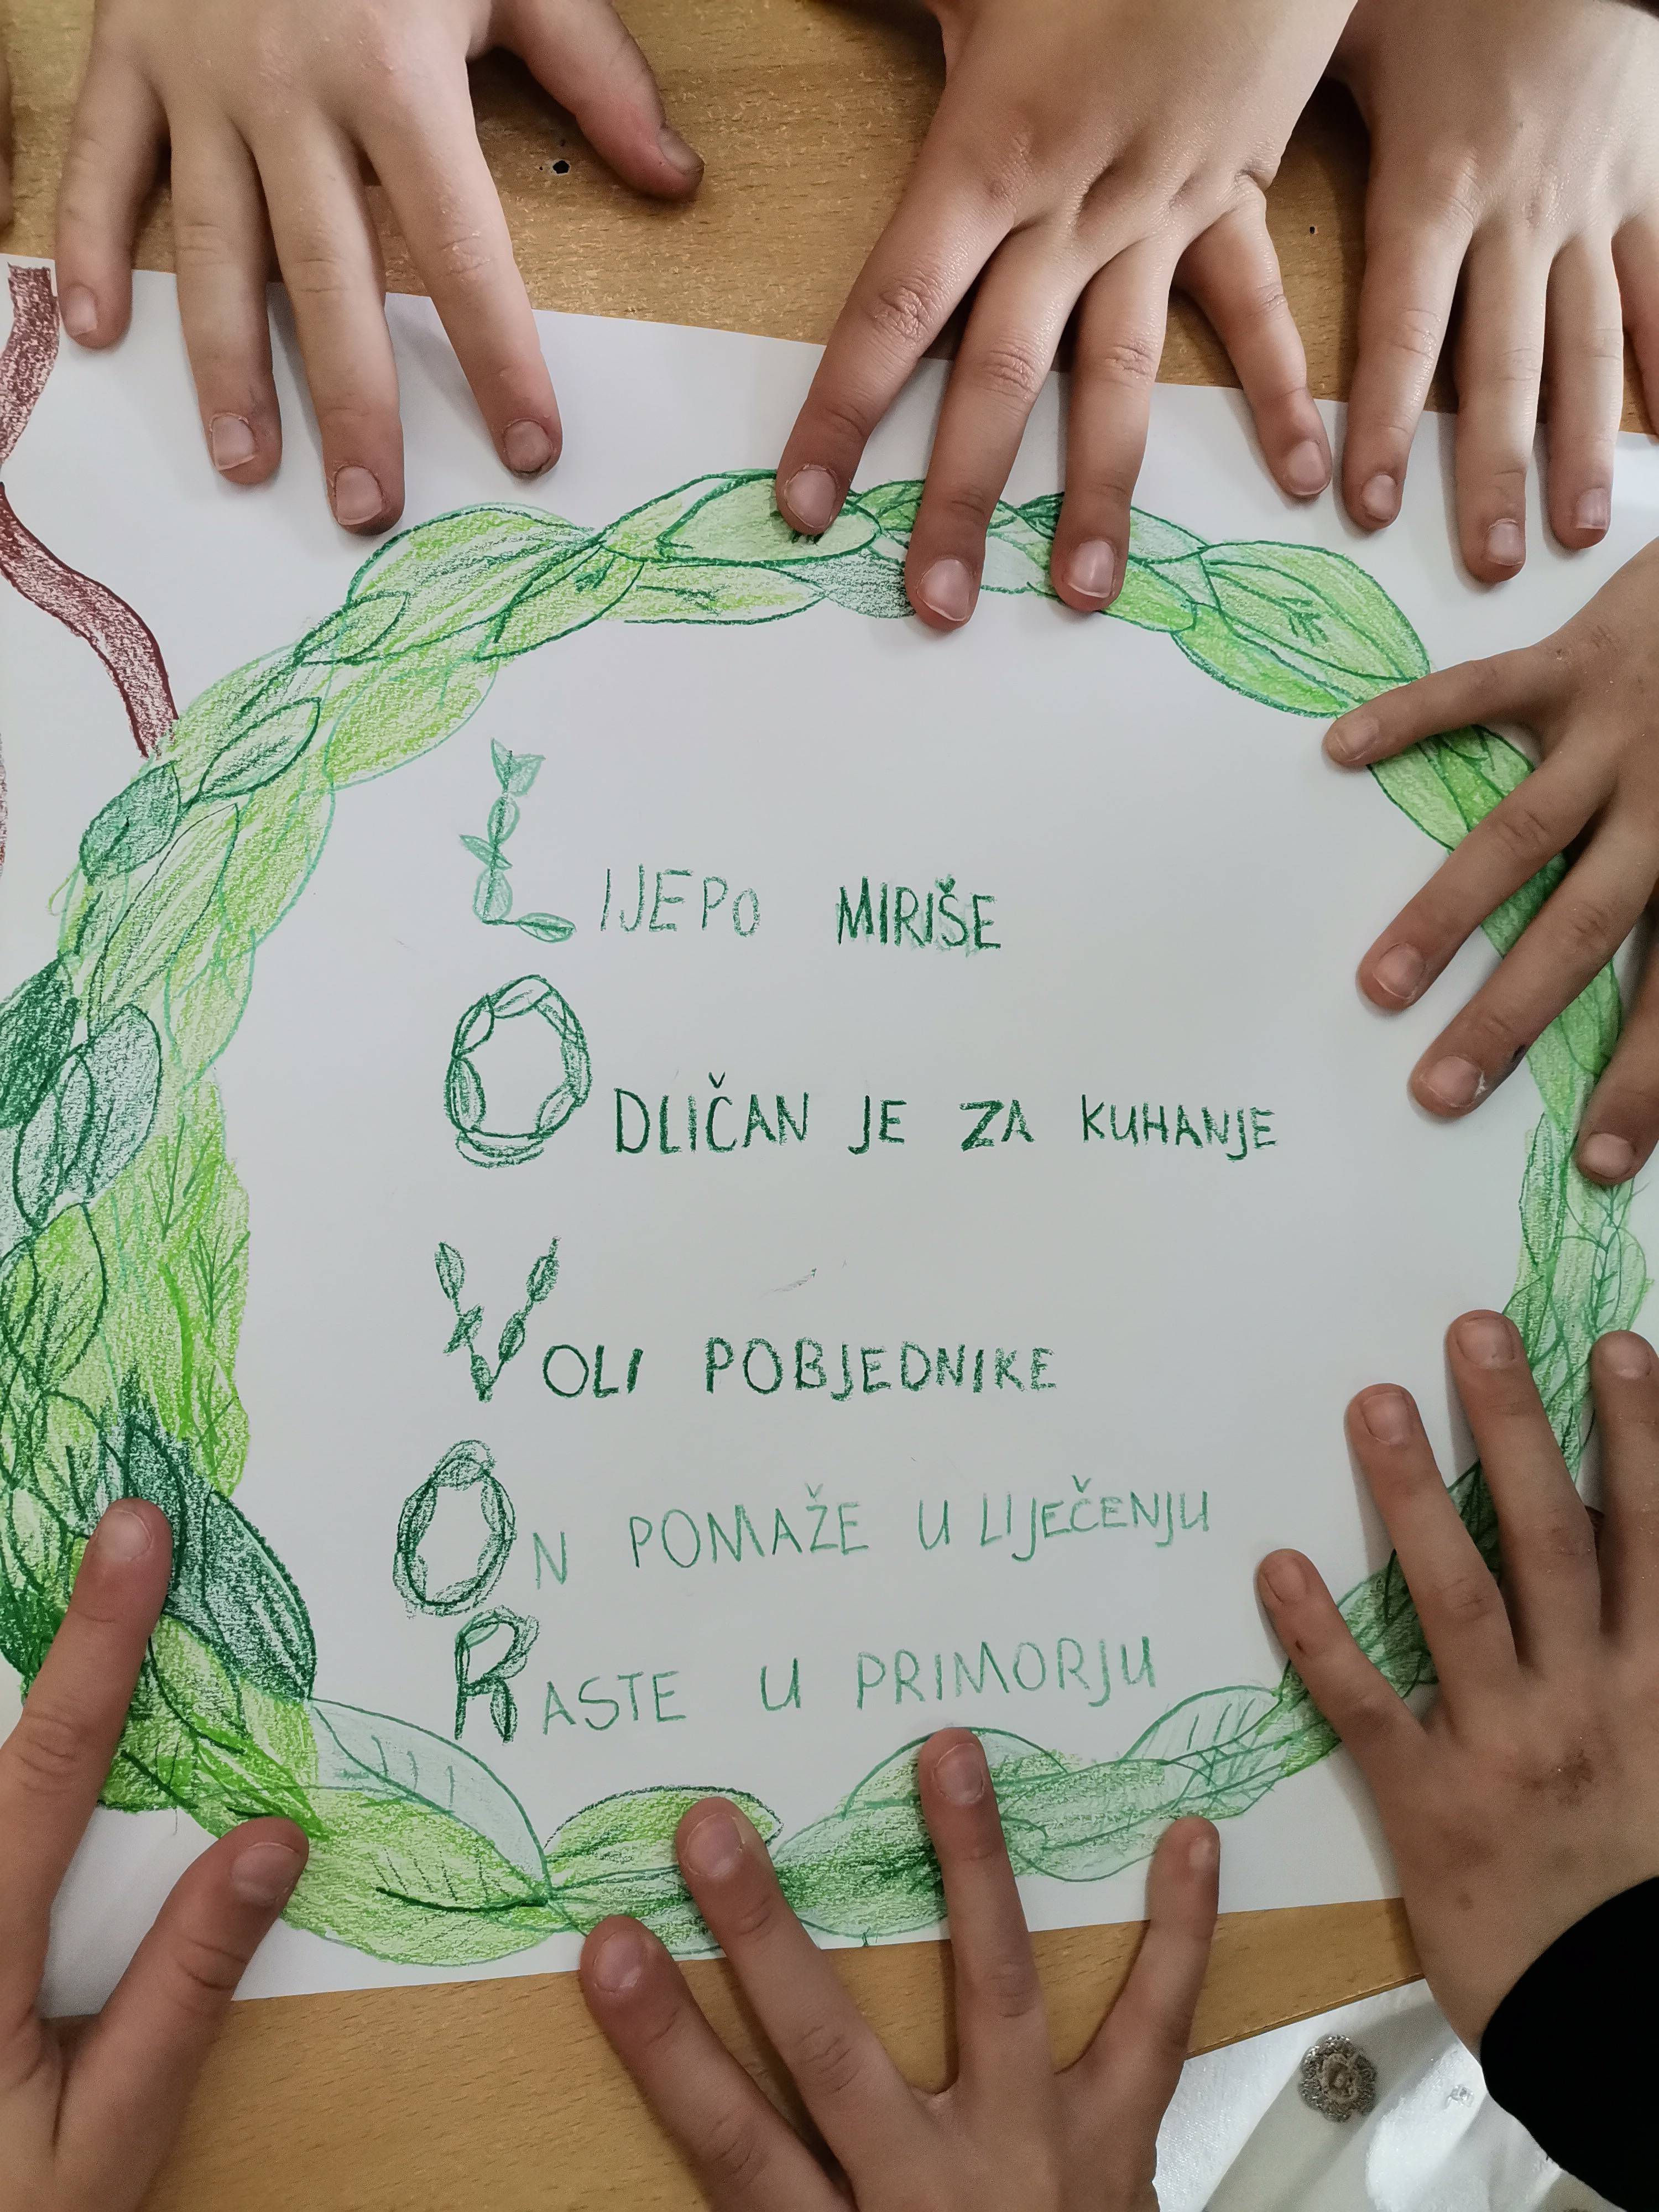 LIJEPO MIRIŠE
ODLIČAN JE ZA KUHANJE
VOLI POBJEDNIKE
ON POMAŽE U LIJEČENJU
RASTE U PRIMORJU